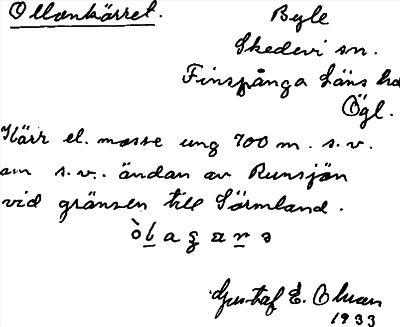 Ollonkärret.
Byle
Skedevi sn.
Finspånga Läns hd
Ögl.
Kärr el. mosse ung 700 m. s.v.
om s.v. ändan av Runsjön
vid gränsen till Sörmland.
Gustaf E. Olsson
1933